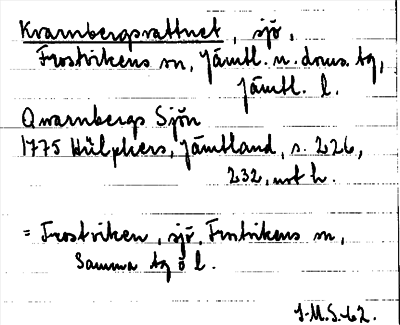 Kvarnbergsvattnet, sjö,
Frostvikens sn, Jämtl. n. doms. tg,
Jämtl. l.
Qvarnbergs Sjön
1775 Hülphers, Jämtland, s. 226,
232, utg h.
= Frostviken, sjö, Frostvikens sn,
Samma tg o l.
J.M.S. 62.